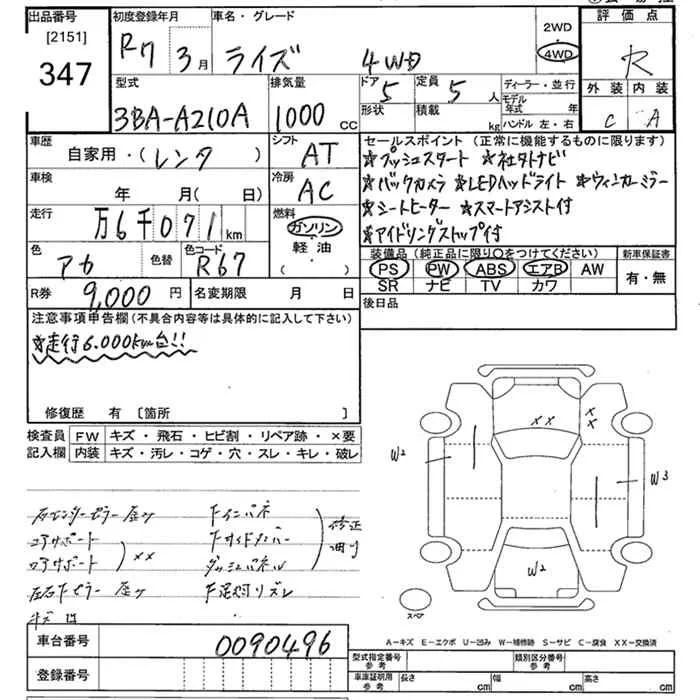 出品番号 初度登録年月 車名・グレード 2WD 評価点
[2151] R7 年 3月 ライズ 4WD 4WD R
347 型式 排気量 ドア 定員 ディーラー・並行 外装 内装
3BA-A210A 1000 CC 5 5人 モデル年式 年 C A
形状 積載 kg ハンドル 左・右
車歴 シフト セールスポイント (正常に機能するものに限ります)
自家用・(レンタ) AT ☆プッシュスタート ☆社外ナビ
車検 冷房 ☆バックカメラ ☆LEDヘッドライト ☆ウィンカーミラー
年 月(日) AC ☆シートヒーター ☆スマートアシスト付
走行 燃料 ☆アイドリングストップ付
万6千071km ガソリン
色 色替 色コード 軽油 装備品 (純正品に限り○をつけてください) 新車保証書
アカ R67 ( ) PS PW ABS エアB AW 有・無
SR ナビ TV カワ
R券 9,000円 名変期限 月 日 後日品
注意事項申告欄(不具合内容等は具体的に記入して下さい)
☆走行6.000km台!!
修復歴 有 [箇所 ]
検査員 FW キズ・飛石・ヒビ割・リペア跡・×要
記入欄 内装 キズ・汚レ・コゲ・穴・スレ・キレ・破レ
××
××
W2
W3
W2
右センターピラー 歪み Fインパネ
コアサポート Fサイドメンバー 修正
ロアサポート ×× ダッシュパネル 曲り
左右Fピラー 歪み F足廻りズレ
スペア
A-キズ E-エクボ U-凹み W-補修跡 S-サビ C-腐食 XX-交換済
車台番号 0090496
型式指定番号 参考 類別区分番号 参考
登録番号 車庫証明用 参考 長さ cm 幅 cm 高さ cm